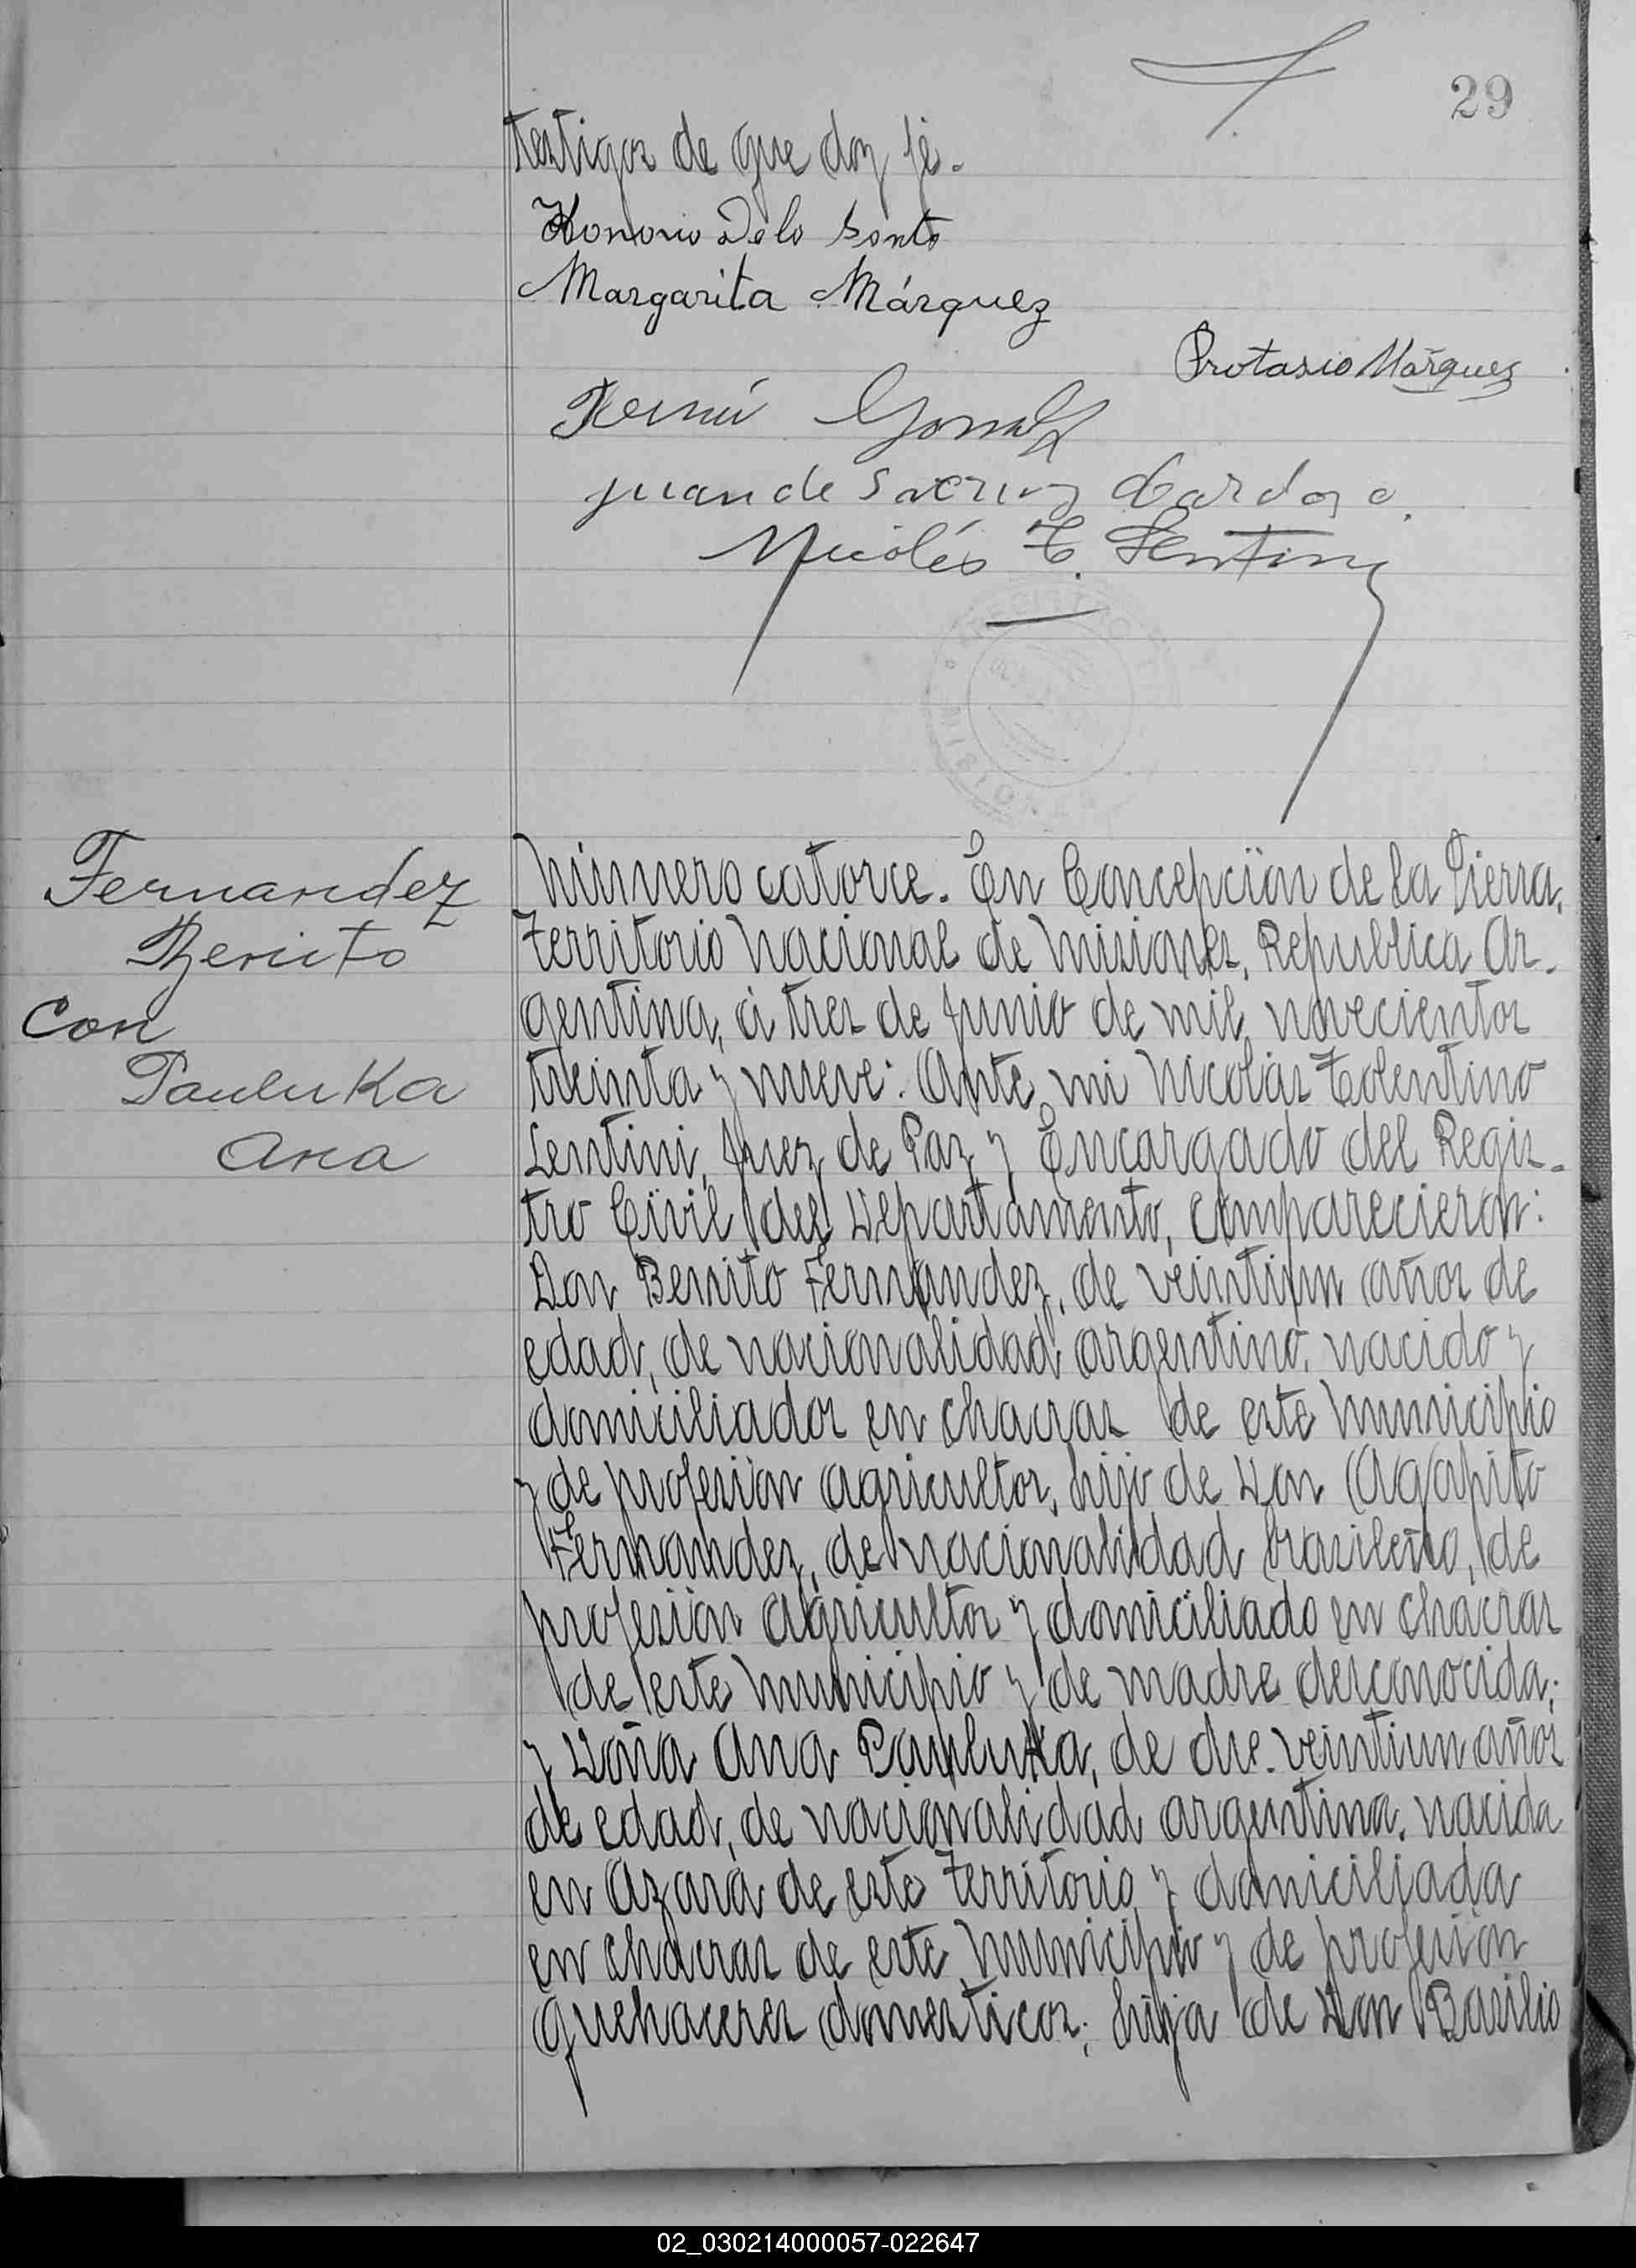 29
testigos de que doy fé.
Honorio Delo Santo
Margarita Márquez
Protasio Márquez
Juan de
Nicolás T. Lentini
REGISTRO
MISIONES
Fernandez
Benito
Con
Pauluka
Ana
Número catorce. En Concepción de la Sierra,
Territorio Nacional de Misiones, Republica Ar-
gentina, á tres de Junio de mil novecientos
treinta y nueve: Ante mi Nicolás Tolentino
Lentini, Juez de Paz y Encargado del Regis-
tro Civil del Departamento, comparecieron:
Don Benito Fernandez, de veintiun años de
edad, de nacionalidad argentino, nacido y
domiciliados en chacras de este Municipio
y de profesión agricultor, hijo de Don Agapito
Fernandez, de nacionalidad brasileño, de
profesión agricultor y domiciliado en chacras
de este Municipio y de madre desconocida;
y Doña Ana Pauluka, de die. veintiun años
de edad, de nacionalidad argentina, nacida
en Azara de este Territorio y domiciliada
en chacras de este Municipio y de profesión
quehaceres domesticos; hija de Don Basilio
02_030214000057-022647